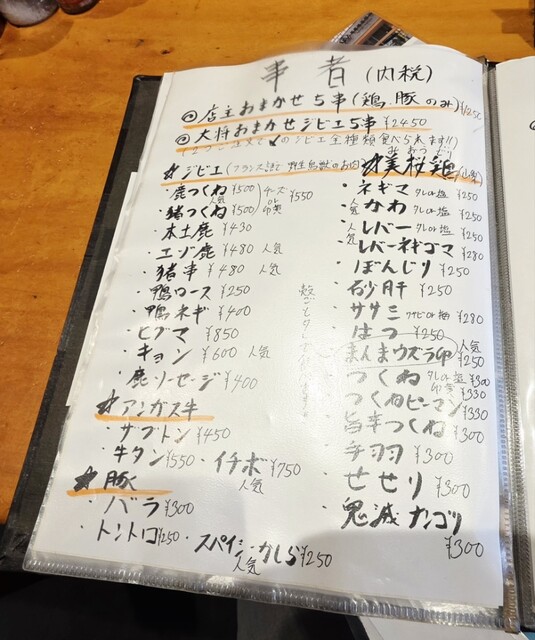 串者 (内税)
◎店主おまかせ5串(鶏、豚のみ)¥1250
◎大将おまかせジビエ5串 ¥2450
(2つご注文で✓のジビエ全種類食べられます!!)
★ジビエ(フランス語で野生鳥獣のお肉)
・鹿つくね¥500 人気
・猪つくね¥500
チーズ or 卵黄 ¥550
・本土鹿 ¥430
・エゾ鹿 ¥480 人気
・猪串 ¥480 人気
・鴨ロース ¥250
・鴨ネギ ¥400
・ヒグマ ¥850
・キョン ¥600 人気
・鹿ソーセージ ¥400
★アンガス牛
・サブトン ¥450
・牛タン ¥550 ・イチボ ¥750 人気
★豚
・バラ ¥300
・トントロ ¥250 ・スパイシーかしら ¥250 人気
★美桜鶏
みおうどり
・ネギマ タレor塩 ¥250
人気・かわ タレor塩 ¥250
人気・レバー タレor塩 ¥250
人気・レバーネギゴマ ¥280
・ぼんじり ¥250
・砂肝 ¥250
・ササミ ワサビor梅 ¥280
・はつ ¥250
・まんまウズラ卵 人気 ¥250
殻ごと
・つくね タレor塩 ¥300 卵黄 ¥330
・つくねピーマン ¥330
・旨辛つくね ¥300
・手羽 ¥300
・せせり ¥300
・鬼滅ナンコツ ¥300